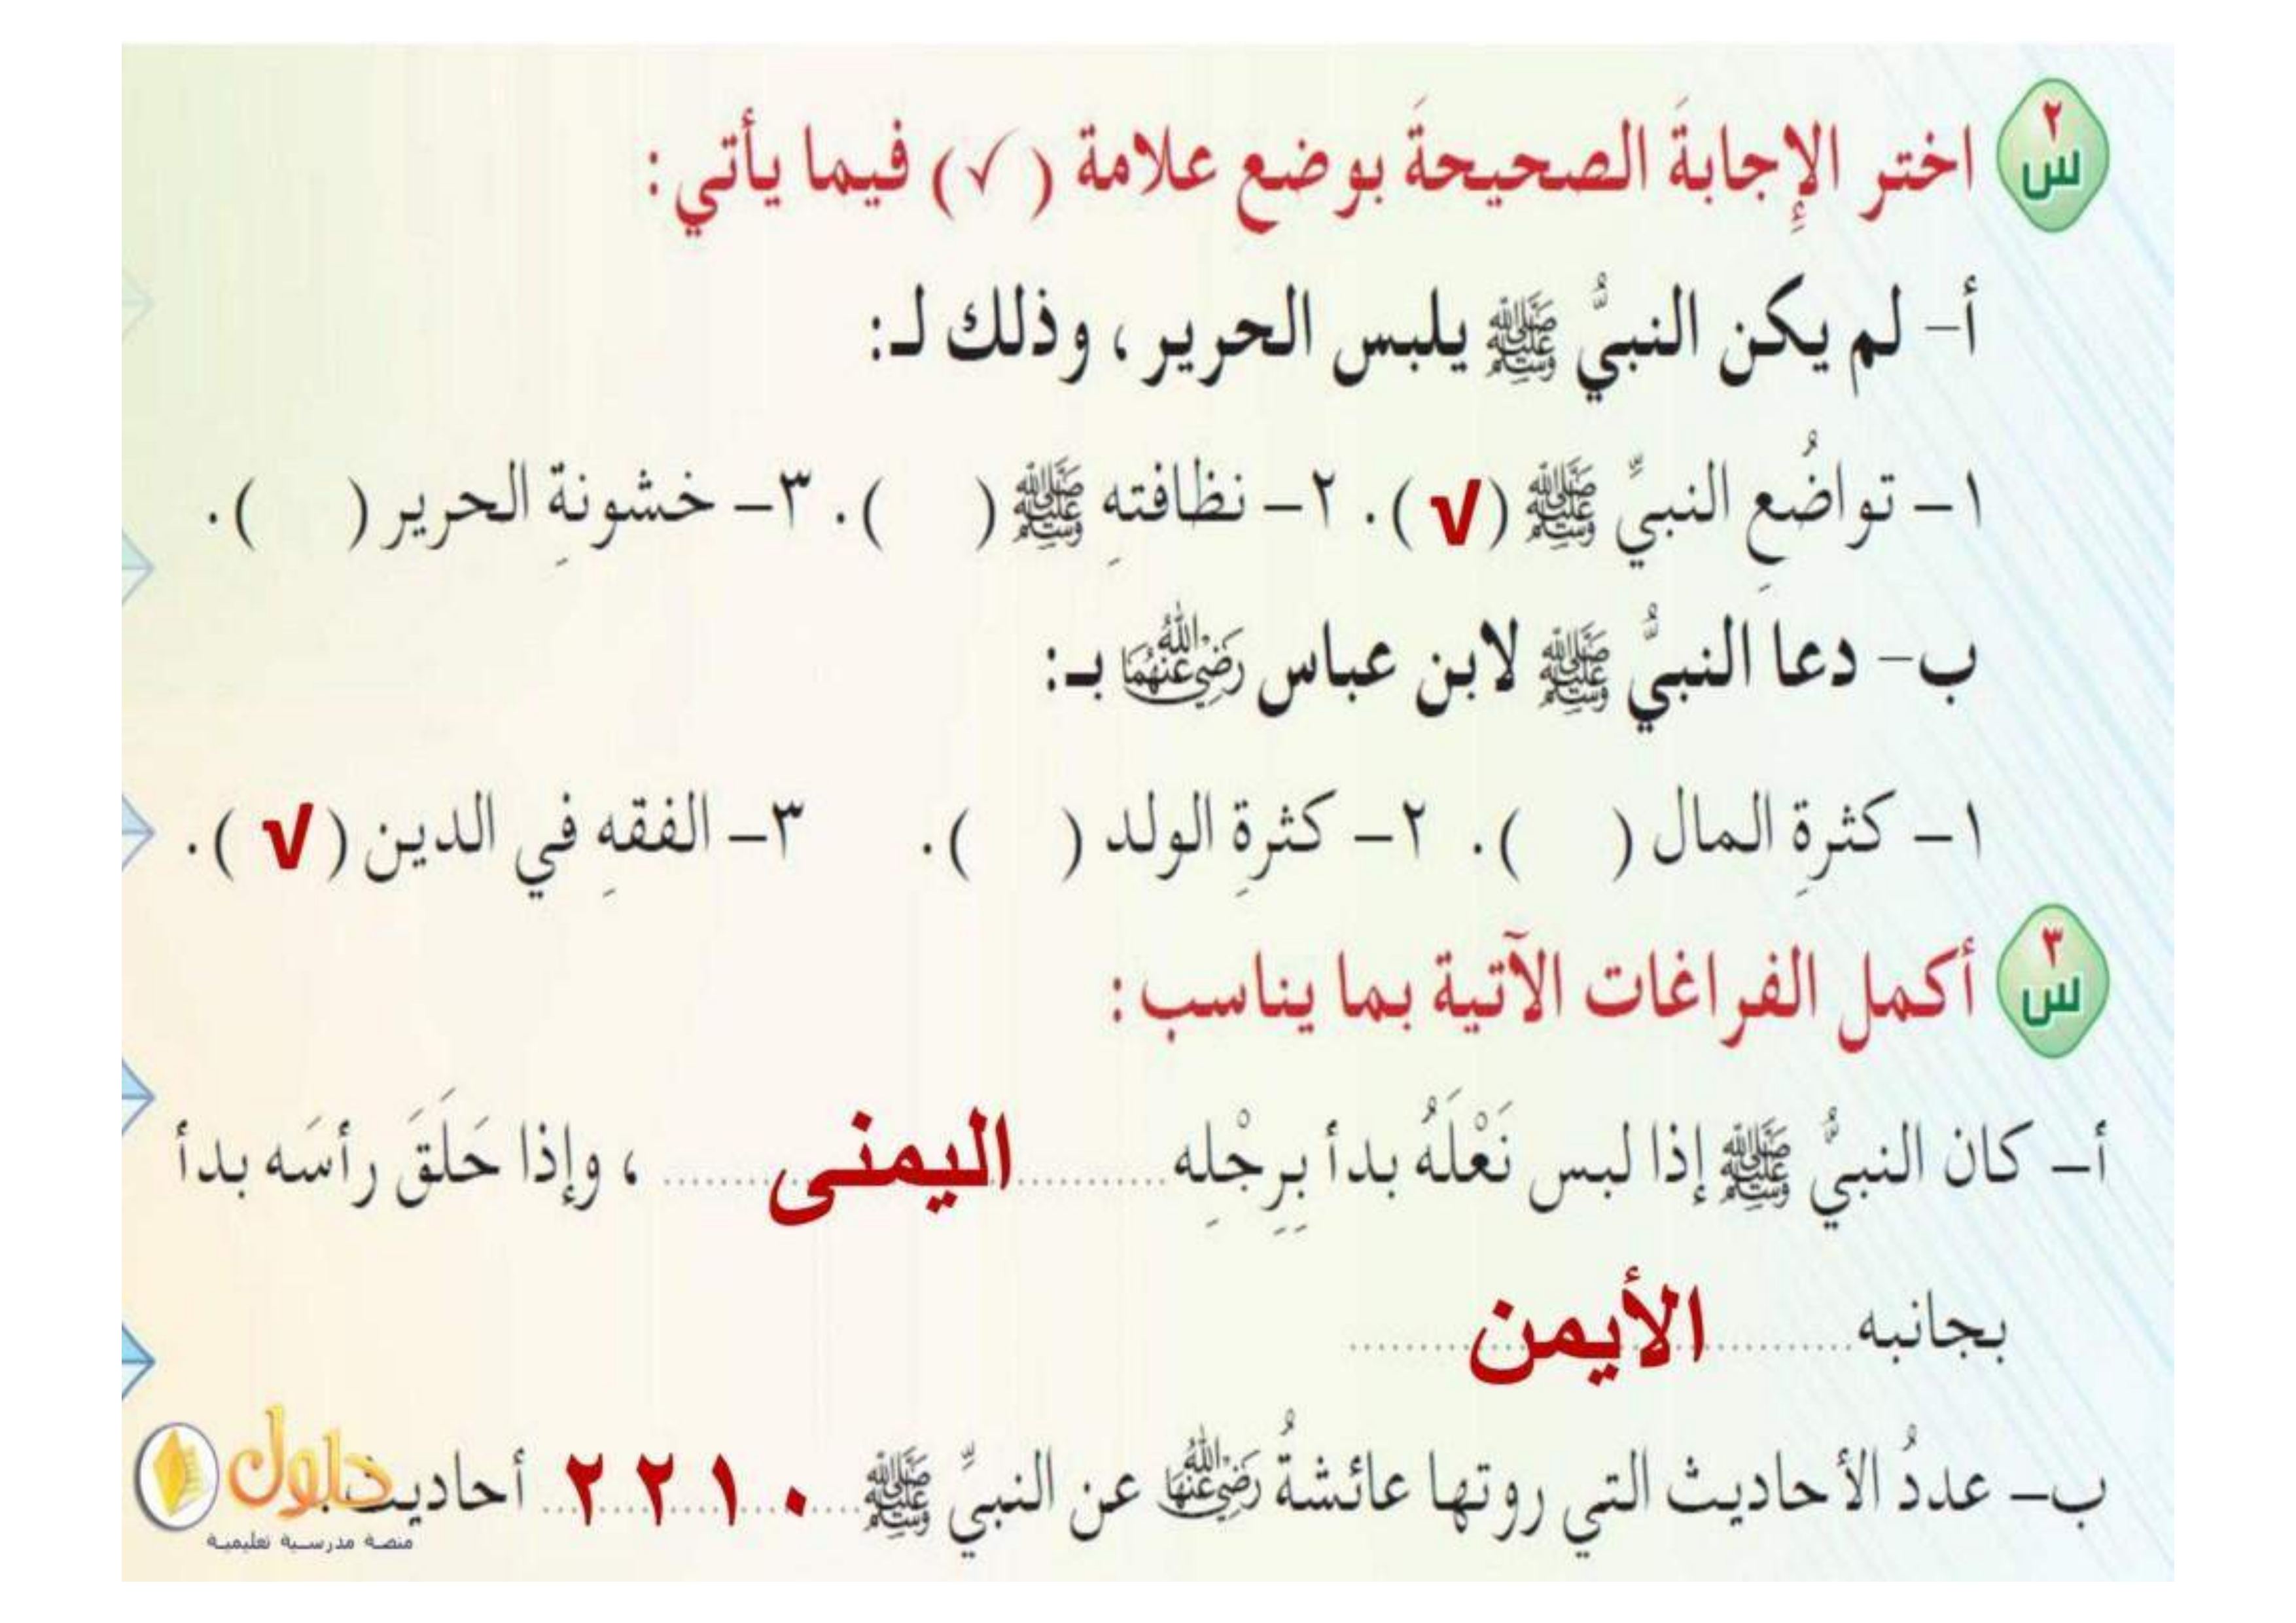 س٢ اختر الإِجابةَ الصحيحةَ بوضع علامة ( ✓ ) فيما يأتي :
أ– لم يكن النبيُّ ﷺ يلبس الحرير ، وذلك لـ:
١– تواضُعِ النبيِّ ﷺ ( √ ). ٢– نظافتهِ ﷺ ( ). ٣– خشونةِ الحرير ( ).
ب– دعا النبيُّ ﷺ لابن عباس رَضِيَ اللهُ عَنْهُمَا بـ:
١– كثرةِ المال ( ). ٢– كثرةِ الولد ( ). ٣– الفقهِ في الدين ( √ ).
س٣ أكمل الفراغات الآتية بما يناسب :
أ– كان النبيُّ ﷺ إذا لبس نَعْلَهُ بدأ بِرِجْلِه ........ اليمنى ........ ، وإذا حَلَقَ رأسَه بدأ
بجانبه ........ الأيمن ........
ب– عددُ الأحاديث التي روتها عائشةُ رَضِيَ اللهُ عَنْهَا عن النبيِّ ﷺ ..... ٢٢١٠ ..... أحاديث.
حلول
منصة مدرسية تعليمية